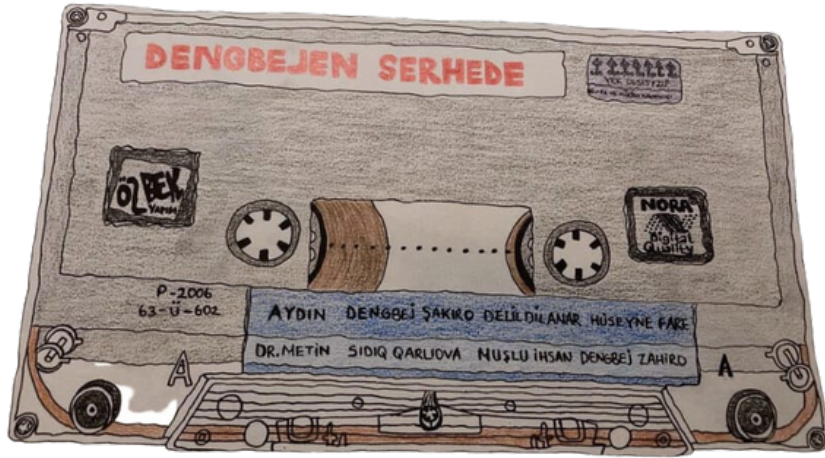 DENGBEJEN SERHEDE
ÖZBEK
YAPIM
NORA
Digital
Quality
P-2006
63-Ü-602
AYDIN DENGBEJ ŞAKIRO DELİL DİLANAR HÜSEYNE FARE
DR.METİN SIDIQ QARLIOVA MUŞLU İHSAN DENGBEJ ZAHIRO
A
A